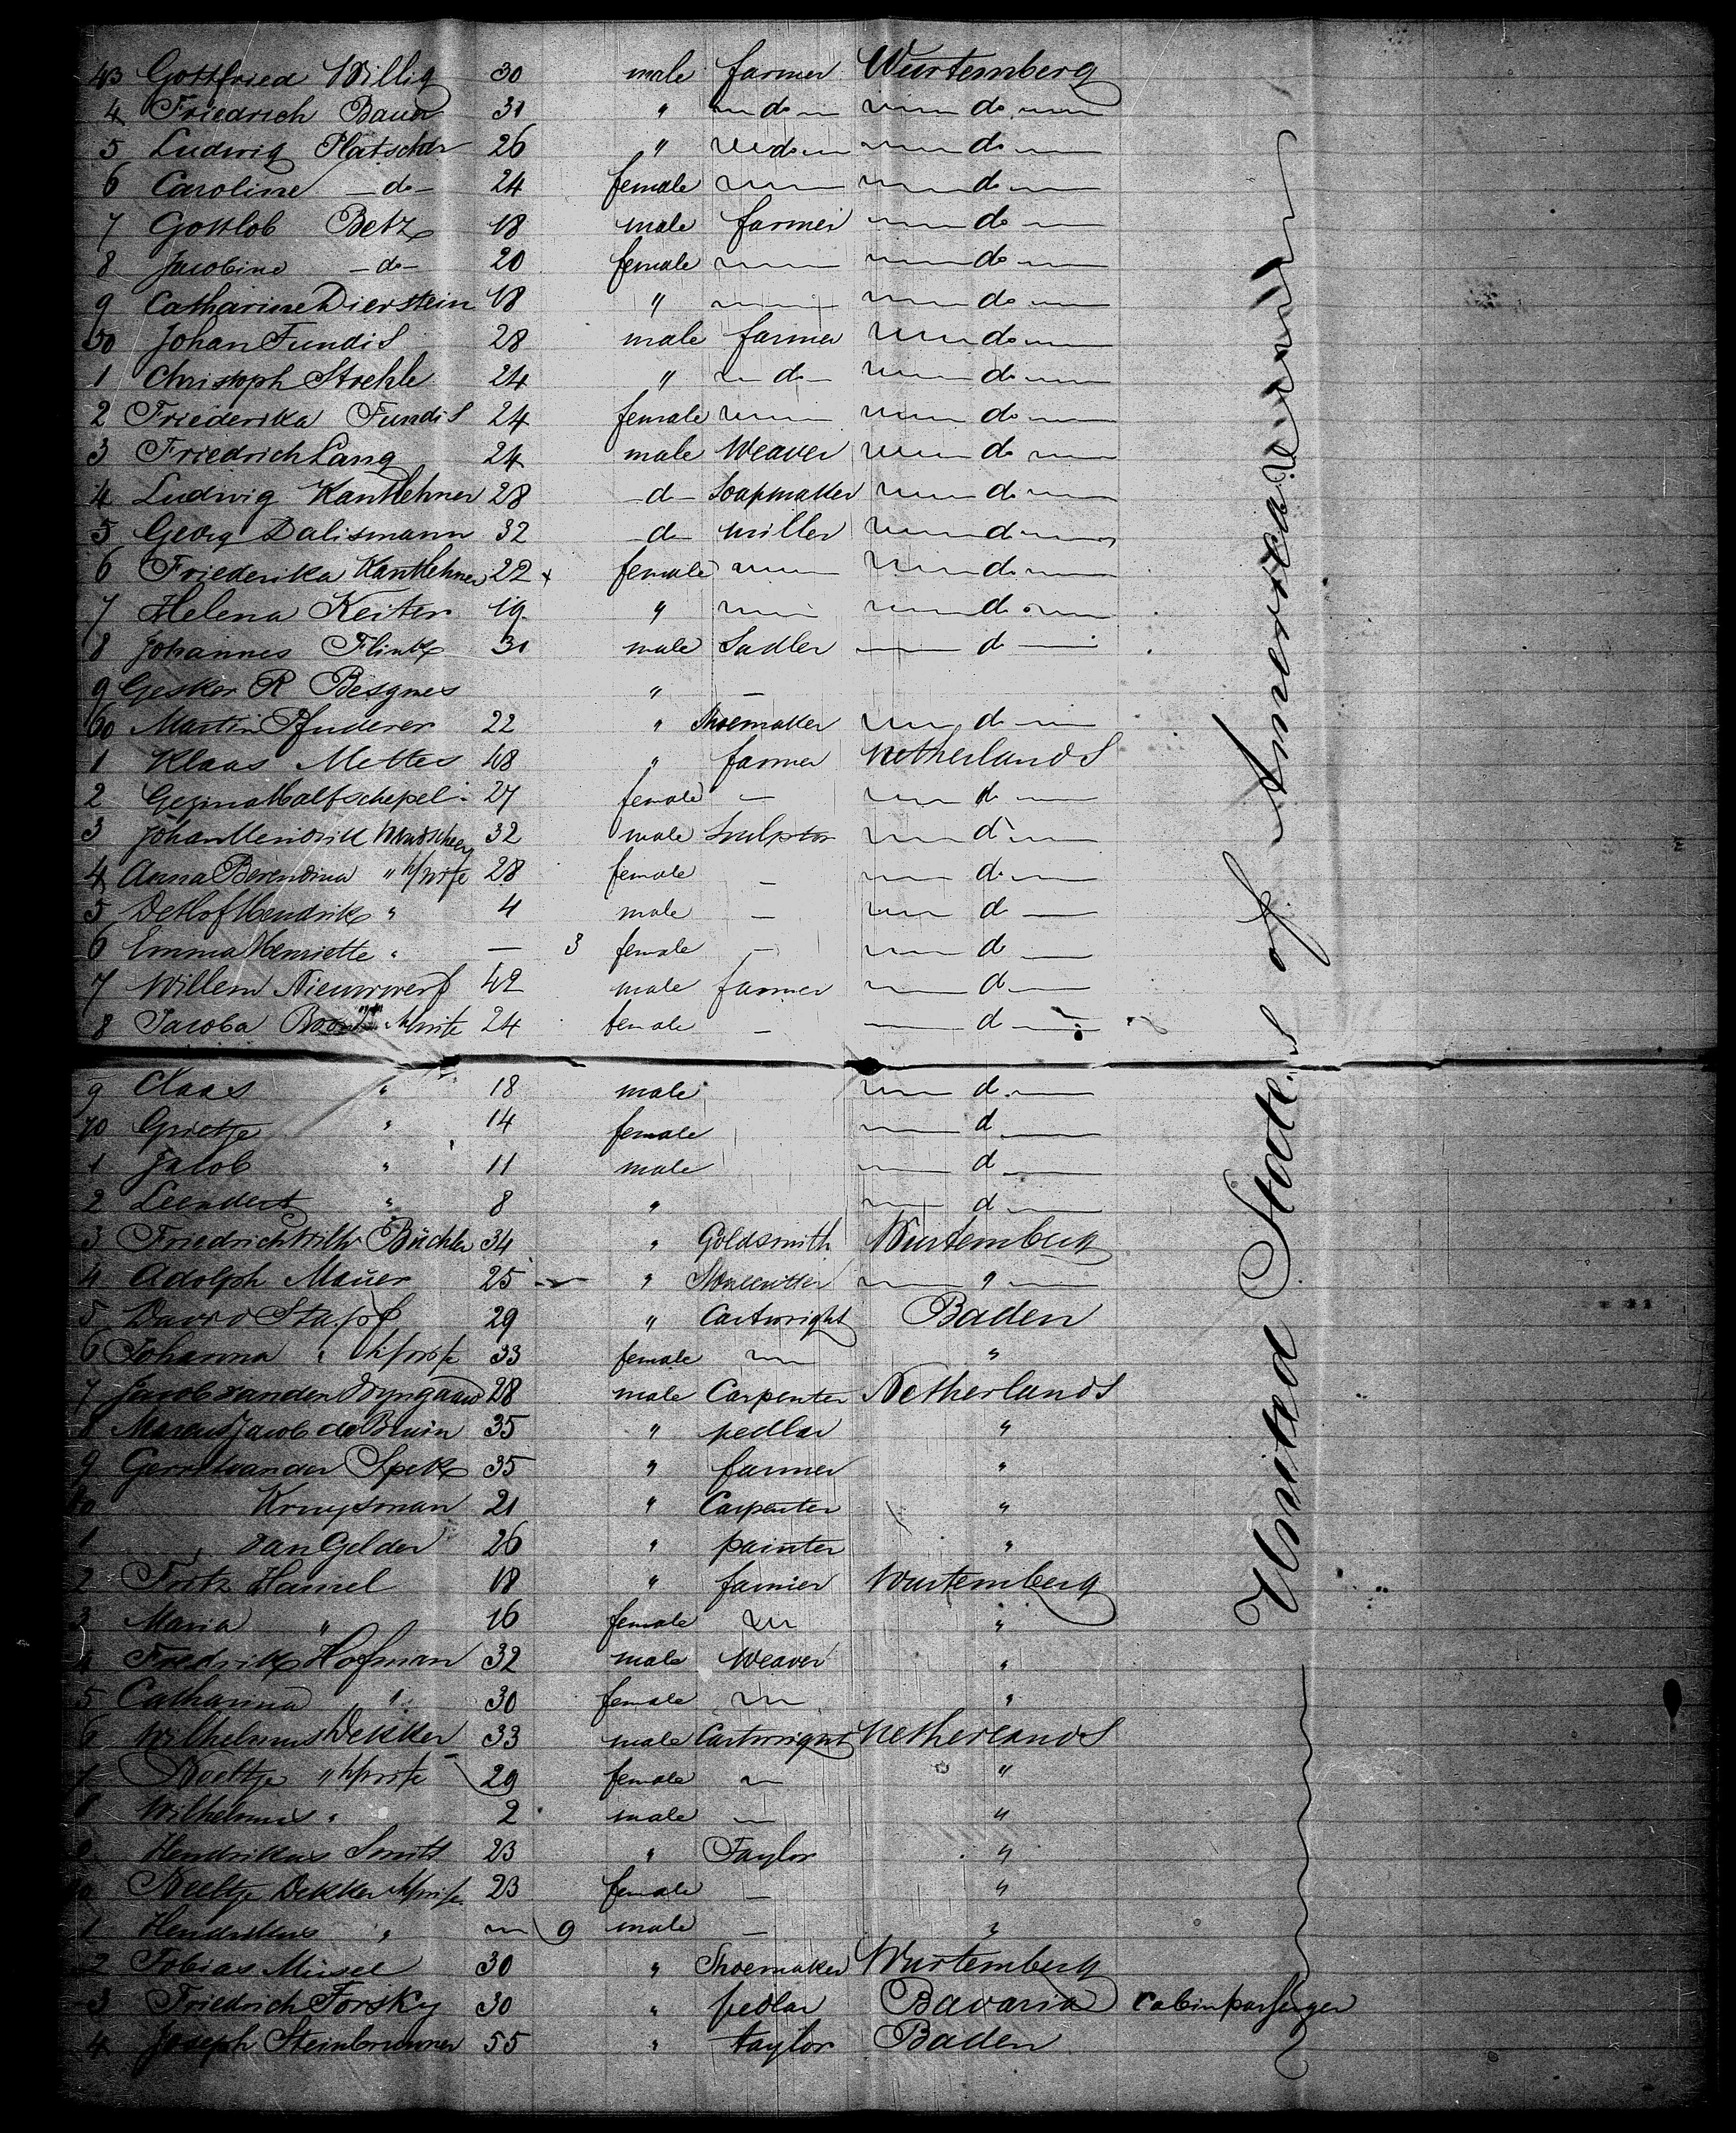 43 Gottfried Willig 30 male farmer Wurtemberg
4 Friedrich Bauer 31 " do do
5 Ludwig Platscher 26 " do do
6 Caroline do 24 female do
7 Gottlob Betz 18 male farmer do
8 Jacobine do 20 female do
9 Catharine Dierstein 18 " do
50 Johan Fundis 28 male farmer do
1 Christoph Stoehle 24 " do do
2 Friederika Fundis 24 female do
3 Friedrich Lang 24 male Weaver do
4 Ludwig Kantlehner 28 d Soapmaker do
5 Georg Dalismann 32 d miller do
6 Friederika Kantlehner 22 female do
7 Helena Keiter 19 " do
8 Johannes Flink 31 male Sadler d
9 Gesker R Besgnes " –
60 Martin Pfuderer 22 " Shoemaker d
1 Klaas Mettes 48 " farmer Netherlands
2 Gezina Halfschepel 27 female – d
3 Johan Hendrik 32 male Sculptor d
4 Anna Berendina " h/wife 28 female – d
5 Detlof Hendrik " 4 male – d
6 Emma Henriette " — 3 female – d
7 Willem Nieuwwerf 42 male farmer d
8 Jacoba h/wife 24 female – d
9 Klaas " 18 male d
70 Grietje " 14 female d
1 Jacob " 11 male d
2 Leendert " 8 " d
3 Friedrich Wilh Büchler 34 " Goldsmith Wurtemberg
4 Adolph Maüer 25 " Stonecutter "
5 David Stapf 29 " Cartwright Baden
6 Johanna " h/wife 33 female "
7 Jacob van den Wyngaard 28 male Carpenter Netherlands
8 Marcus Jacob de Bruin 35 " pedlar "
9 Gerrit van der Spek 35 " farmer "
80 Kruysman 21 " Carpenter "
1 van Gelder 26 " painter "
2 Fritz Hamel 18 " farmer Wurtemberg
3 Maria " 16 female "
4 Fredrik Hofman 32 male Weaver "
5 Catharina " 30 female "
6 Wilhelmus Dekker 33 male Cartwright Netherlands
7 " h/wife 29 female "
8 Wilhelmus " 2 male – "
9 Hendrikus Smits 23 " Taylor "
90 Neeltje Dekker h/wife 23 female – "
1 Hendrikus " 9 male – "
2 Tobias Müsel 30 " Shoemaker Wurtemberg
3 Friedrich Forsky 30 " pedlar Bavaria cabin passenger
4 Joseph Steinbrunner 55 " taylor Baden
United States of America